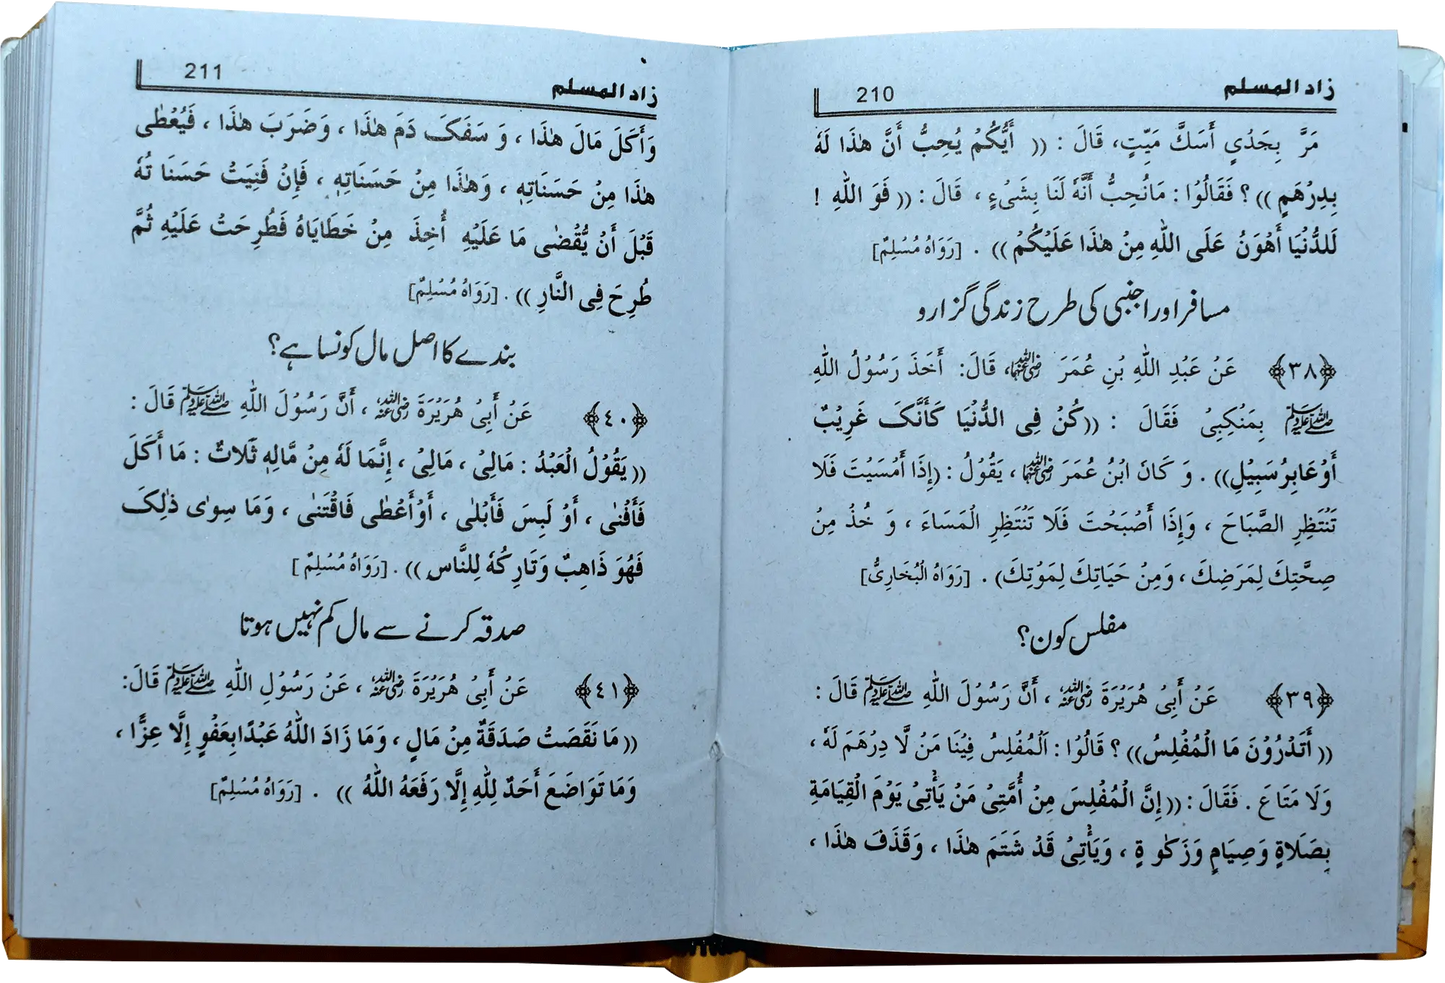 زاد المسلم 210
مَرَّ بِجَدْيٍ أَسَكَّ مَيِّتٍ، قَالَ : (( أَيُّكُمْ يُحِبُّ أَنَّ هٰذَا لَهٗ
بِدِرْهَمٍ )) ؟ فَقَالُوْا : مَانُحِبُّ أَنَّهٗ لَنَا بِشَيْءٍ ، قَالَ : (( فَوَ اللّٰهِ !
لَلدُّنْيَا أَهْوَنُ عَلَى اللّٰهِ مِنْ هٰذَا عَلَيْكُمْ )) . [رَوَاهُ مُسْلِمٌ]
مسافر اور اجنبی کی طرح زندگی گزارو
﴿٣٨﴾ عَنْ عَبْدِ اللّٰهِ بْنِ عُمَرَ رضي الله عنهما، قَالَ: أَخَذَ رَسُوْلُ اللّٰهِ
ﷺ بِمَنْكِبِيْ فَقَالَ : ((كُنْ فِي الدُّنْيَا كَأَنَّكَ غَرِيْبٌ
أَوْعَابِرُسَبِيْلٍ)) . وَ كَانَ ابْنُ عُمَرَ رضي الله عنهما ، يَقُوْلُ : (إِذَا أَمْسَيْتَ فَلَا
تَنْتَظِرِ الصَّبَاحَ ، وَإِذَا أَصْبَحْتَ فَلَا تَنْتَظِرِ الْمَسَاءَ ، وَ خُذْ مِنْ
صِحَّتِكَ لِمَرَضِكَ ، وَمِنْ حَيَاتِكَ لِمَوْتِكَ) . [رَوَاهُ الْبُخَارِيُّ]
مفلس کون؟
﴿٣٩﴾ عَنْ أَبِيْ هُرَيْرَةَ رضي الله عنه ، أَنَّ رَسُوْلَ اللّٰهِ ﷺ قَالَ :
(( أَتَدْرُوْنَ مَا الْمُفْلِسُ)) ؟ قَالُوْا : اَلْمُفْلِسُ فِيْنَا مَنْ لَّا دِرْهَمَ لَهٗ ،
وَلَا مَتَاعَ . فَقَالَ : ((إِنَّ الْمُفْلِسَ مِنْ أُمَّتِيْ مَنْ يَأْتِيْ يَوْمَ الْقِيَامَةِ
بِصَلَاةٍ وَصِيَامٍ وَزَكٰو ةٍ ، وَيَأْتِيْ قَدْ شَتَمَ هٰذَا ، وَقَذَفَ هٰذَا ،
زاد المسلم 211
وَأَكَلَ مَالَ هٰذَا ، وَ سَفَكَ دَمَ هٰذَا ، وَضَرَبَ هٰذَا ، فَيُعْطٰى
هٰذَا مِنْ حَسَنَاتِهٖ ، وَهٰذَا مِنْ حَسَنَاتِهٖ ، فَإِنْ فَنِيَتْ حَسَنَا تُهٗ
قَبْلَ أَنْ يُّقْضٰى مَا عَلَيْهِ أُخِذَ مِنْ خَطَايَاهُ فَطُرِحَتْ عَلَيْهِ ثُمَّ
طُرِحَ فِي النَّارِ )) . [رَوَاهُ مُسْلِمٌ]
بندے کا اصل مال کونسا ہے؟
﴿٤٠﴾ عَنْ أَبِيْ هُرَيْرَةَ رضي الله عنه ، أَنَّ رَسُوْلَ اللّٰهِ ﷺ قَالَ :
(( يَقُوْلُ الْعَبْدُ : مَالِيْ ، مَالِيْ ، إِنَّمَا لَهٗ مِنْ مَّالِهٖ ثَلَاثٌ : مَا أَكَلَ
فَأَفْنٰى ، أَوْ لَبِسَ فَأَبْلٰى ، أَوْأَعْطٰى فَاقْتَنٰى ، وَمَا سِوٰى ذٰلِكَ
فَهُوَ ذَاهِبٌ وَتَارِكُهٗ لِلنَّاسِ)) . [رَوَاهُ مُسْلِمٌ ]
صدقہ کرنے سے مال کم نہیں ہوتا
﴿٤١﴾ عَنْ أَبِيْ هُرَيْرَةَ رضي الله عنه ، عَنْ رَسُوْلِ اللّٰهِ ﷺ قَالَ:
(( مَا نَقَصَتْ صَدَقَةٌ مِنْ مَالٍ ، وَمَا زَادَ اللّٰهُ عَبْدًابِعَفْوٍ إِلَّا عِزًّا ،
وَمَا تَوَاضَعَ أَحَدٌ لِلّٰهِ إِلَّا رَفَعَهُ اللّٰهُ )) . [رَوَاهُ مُسْلِمٌ]